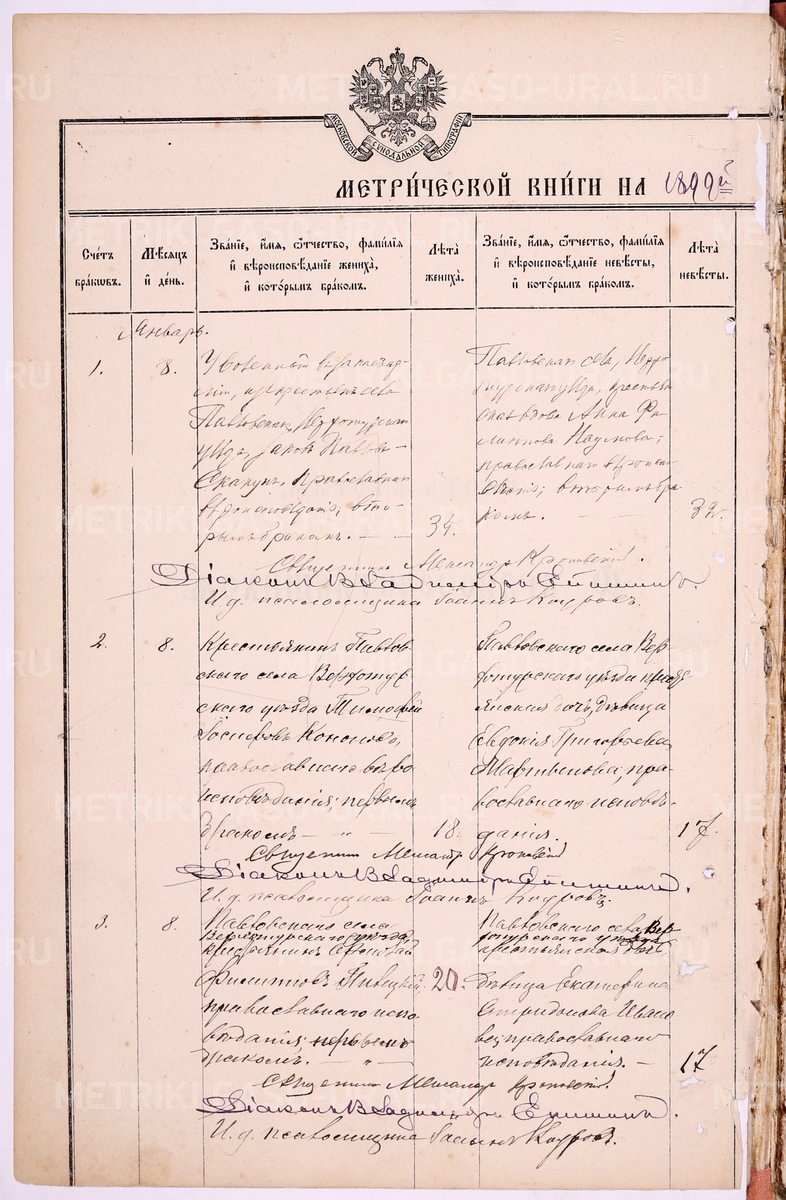 МОСКОВСКОЙ СѴНОДАЛЬНОЙ ТИПОГРАФІИ
МЕТРИ́ЧЕСКОЙ КНИ́ГИ НА 1899й
Сче́тъ бра́кѡвъ.
Мѣ́сяцъ и҆ де́нь.
Зва́нїе, и҆́мя, ѻ҆́тчество, фамѝлїя и҆ вѣроисповѣ́данїе жениха̀, и҆ кото́рымъ бра́комъ.
Лѣ́та жениха̀.
Зва́нїе, и҆́мя, ѻ҆́тчество, фамѝлїя и҆ вѣроисповѣ́данїе невѣ́сты, и҆ кото́рымъ бра́комъ.
Лѣ́та невѣ́сты.
Январь.
1.
8.
Уволенный
изъ крестьянъ села
Павловскаго, Верхотурскаго
уѣзда, Яковъ Павловъ
православнаго
вѣроисповѣданія, вто-
рымъ бракомъ.
34.
Павловскаго села, Верхо-
турскаго уѣзда, крестьян-
ская вдова Анна Фи-
липпова Наумова,
православнаго вѣроиспо-
вѣданія; вторымъ бра-
комъ.
32.
Священникъ Александръ
Діаконъ Владиміръ
И. д. псаломщика Іоаннъ
2.
8.
Крестьянинъ Павлов-
скаго села Верхотур-
скаго уѣзда Тимофей
православнаго вѣро-
исповѣданія; первымъ
бракомъ — " —
18.
Павловскаго села Вер-
хотурскаго уѣзда кресть-
янская дочь, дѣвица
Евдокія Григорьева
Мартынова, пра-
вославнаго исповѣ-
данія.
17.
Священникъ Александръ
Діаконъ Владиміръ
И. д. псаломщика Іоаннъ
3.
8.
Павловскаго села
Верхотурскаго уѣзда
крестьянинъ
Филипповъ
православнаго испо-
вѣданія; первымъ
бракомъ. — " —
20.
Павловскаго села Вер-
хотурскаго уѣзда
крестьянская дочь
дѣвица Екатерина
Спиридонова Ивано-
ва; православнаго
исповѣданія. —
17
Священникъ Александръ
Діаконъ Владиміръ
И. д. псаломщика Іоаннъ